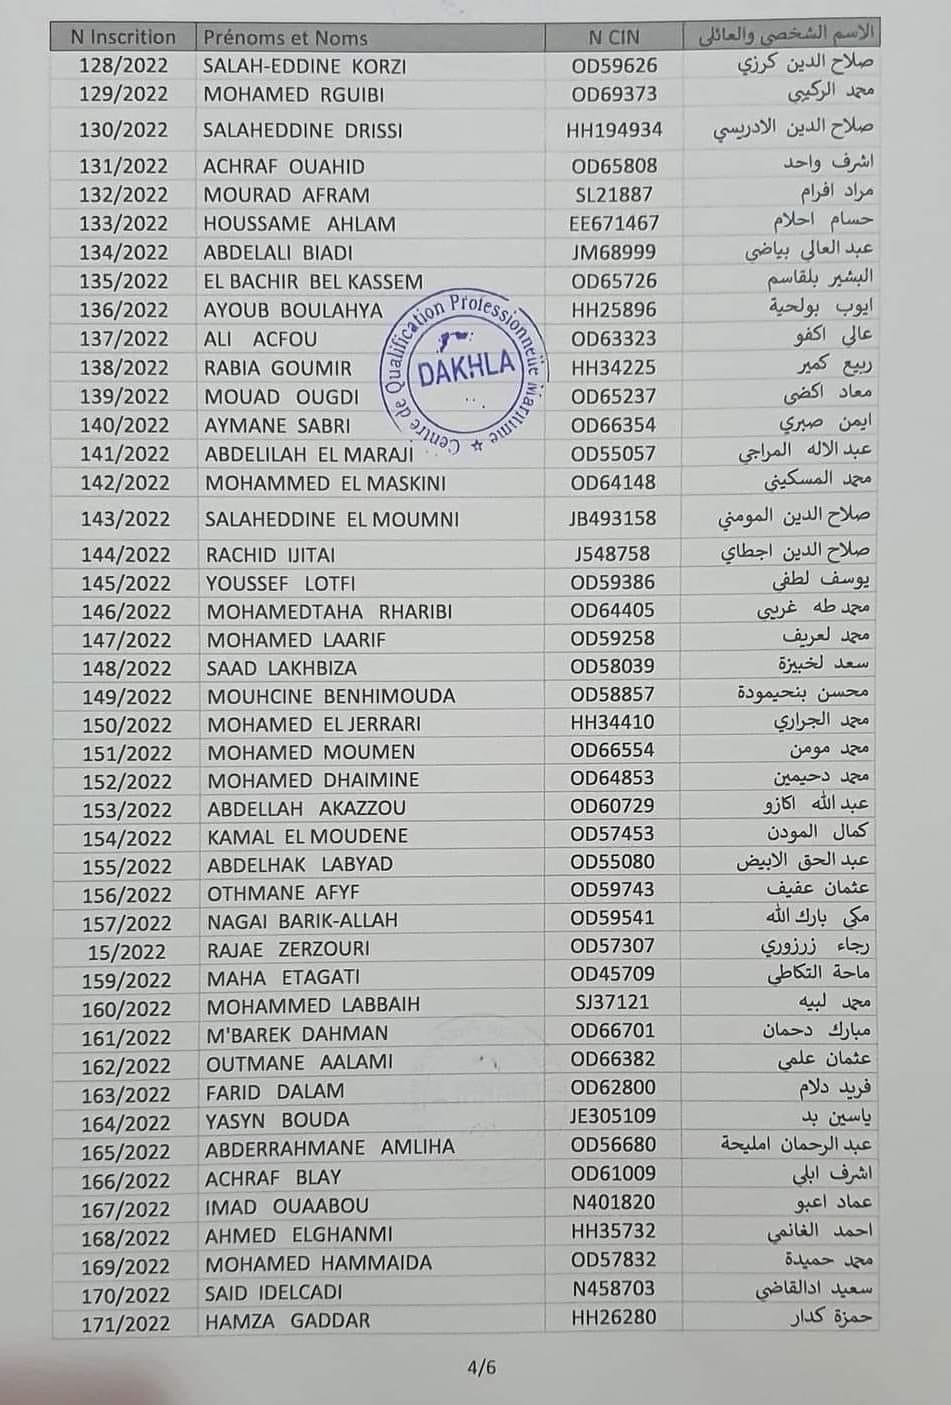 N Inscription Prénoms et Noms N CIN الاسم الشخصي والعائلي
128/2022 SALAH-EDDINE KORZI OD59626 صلاح الدين كرزي
129/2022 MOHAMED RGUIBI OD69373 محمد الركيبي
130/2022 SALAHEDDINE DRISSI HH194934 صلاح الدين الادريسي
131/2022 ACHRAF OUAHID OD65808 اشرف واحد
132/2022 MOURAD AFRAM SL21887 مراد افرام
133/2022 HOUSSAME AHLAM EE671467 حسام احلام
134/2022 ABDELALI BIADI JM68999 عبد العالي بياضي
135/2022 EL BACHIR BEL KASSEM OD65726 البشير بلقاسم
136/2022 AYOUB BOULAHYA HH25896 ايوب بولحية
137/2022 ALI ACFOU OD63323 عالي اكفو
138/2022 RABIA GOUMIR HH34225 ربيع كمير
139/2022 MOUAD OUGDI OD65237 معاد اكضى
140/2022 AYMANE SABRI OD66354 ايمن صبري
141/2022 ABDELILAH EL MARAJI OD55057 عبد الاله المراجي
142/2022 MOHAMMED EL MASKINI OD64148 محمد المسكيني
143/2022 SALAHEDDINE EL MOUMNI JB493158 صلاح الدين المومني
144/2022 RACHID IJITAI J548758 صلاح الدين اجطاي
145/2022 YOUSSEF LOTFI OD59386 يوسف لطفي
146/2022 MOHAMEDTAHA RHARIBI OD64405 محمد طه غريبي
147/2022 MOHAMED LAARIF OD59258 محمد لعريف
148/2022 SAAD LAKHBIZA OD58039 سعد لخبيزة
149/2022 MOUHCINE BENHIMOUDA OD58857 محسن بنحيمودة
150/2022 MOHAMED EL JERRARI HH34410 محمد الجراري
151/2022 MOHAMED MOUMEN OD66554 محمد مومن
152/2022 MOHAMED DHAIMINE OD64853 محمد دحيمين
153/2022 ABDELLAH AKAZZOU OD60729 عبد الله اكازو
154/2022 KAMAL EL MOUDENE OD57453 كمال المودن
155/2022 ABDELHAK LABYAD OD55080 عبد الحق الابيض
156/2022 OTHMANE AFYF OD59743 عثمان عفيف
157/2022 NAGAI BARIK-ALLAH OD59541 مكي بارك الله
15/2022 RAJAE ZERZOURI OD57307 رجاء زرزوري
159/2022 MAHA ETAGATI OD45709 ماحة التكاطي
160/2022 MOHAMMED LABBAIH SJ37121 محمد لبيه
161/2022 M'BAREK DAHMAN OD66701 مبارك دحمان
162/2022 OUTMANE AALAMI OD66382 عثمان علمي
163/2022 FARID DALAM OD62800 فريد دلام
164/2022 YASYN BOUDA JE305109 ياسين بد
165/2022 ABDERRAHMANE AMLIHA OD56680 عبد الرحمان امليحة
166/2022 ACHRAF BLAY OD61009 اشرف ابلي
167/2022 IMAD OUAABOU N401820 عماد اعبو
168/2022 AHMED ELGHANMI HH35732 احمد الغانمي
169/2022 MOHAMED HAMMAIDA OD57832 محمد حميدة
170/2022 SAID IDELCADI N458703 سعيد ادالقاضي
171/2022 HAMZA GADDAR HH26280 حمزة كدار
Centre de Qualification Professionnelle Maritime
DAKHLA
4/6